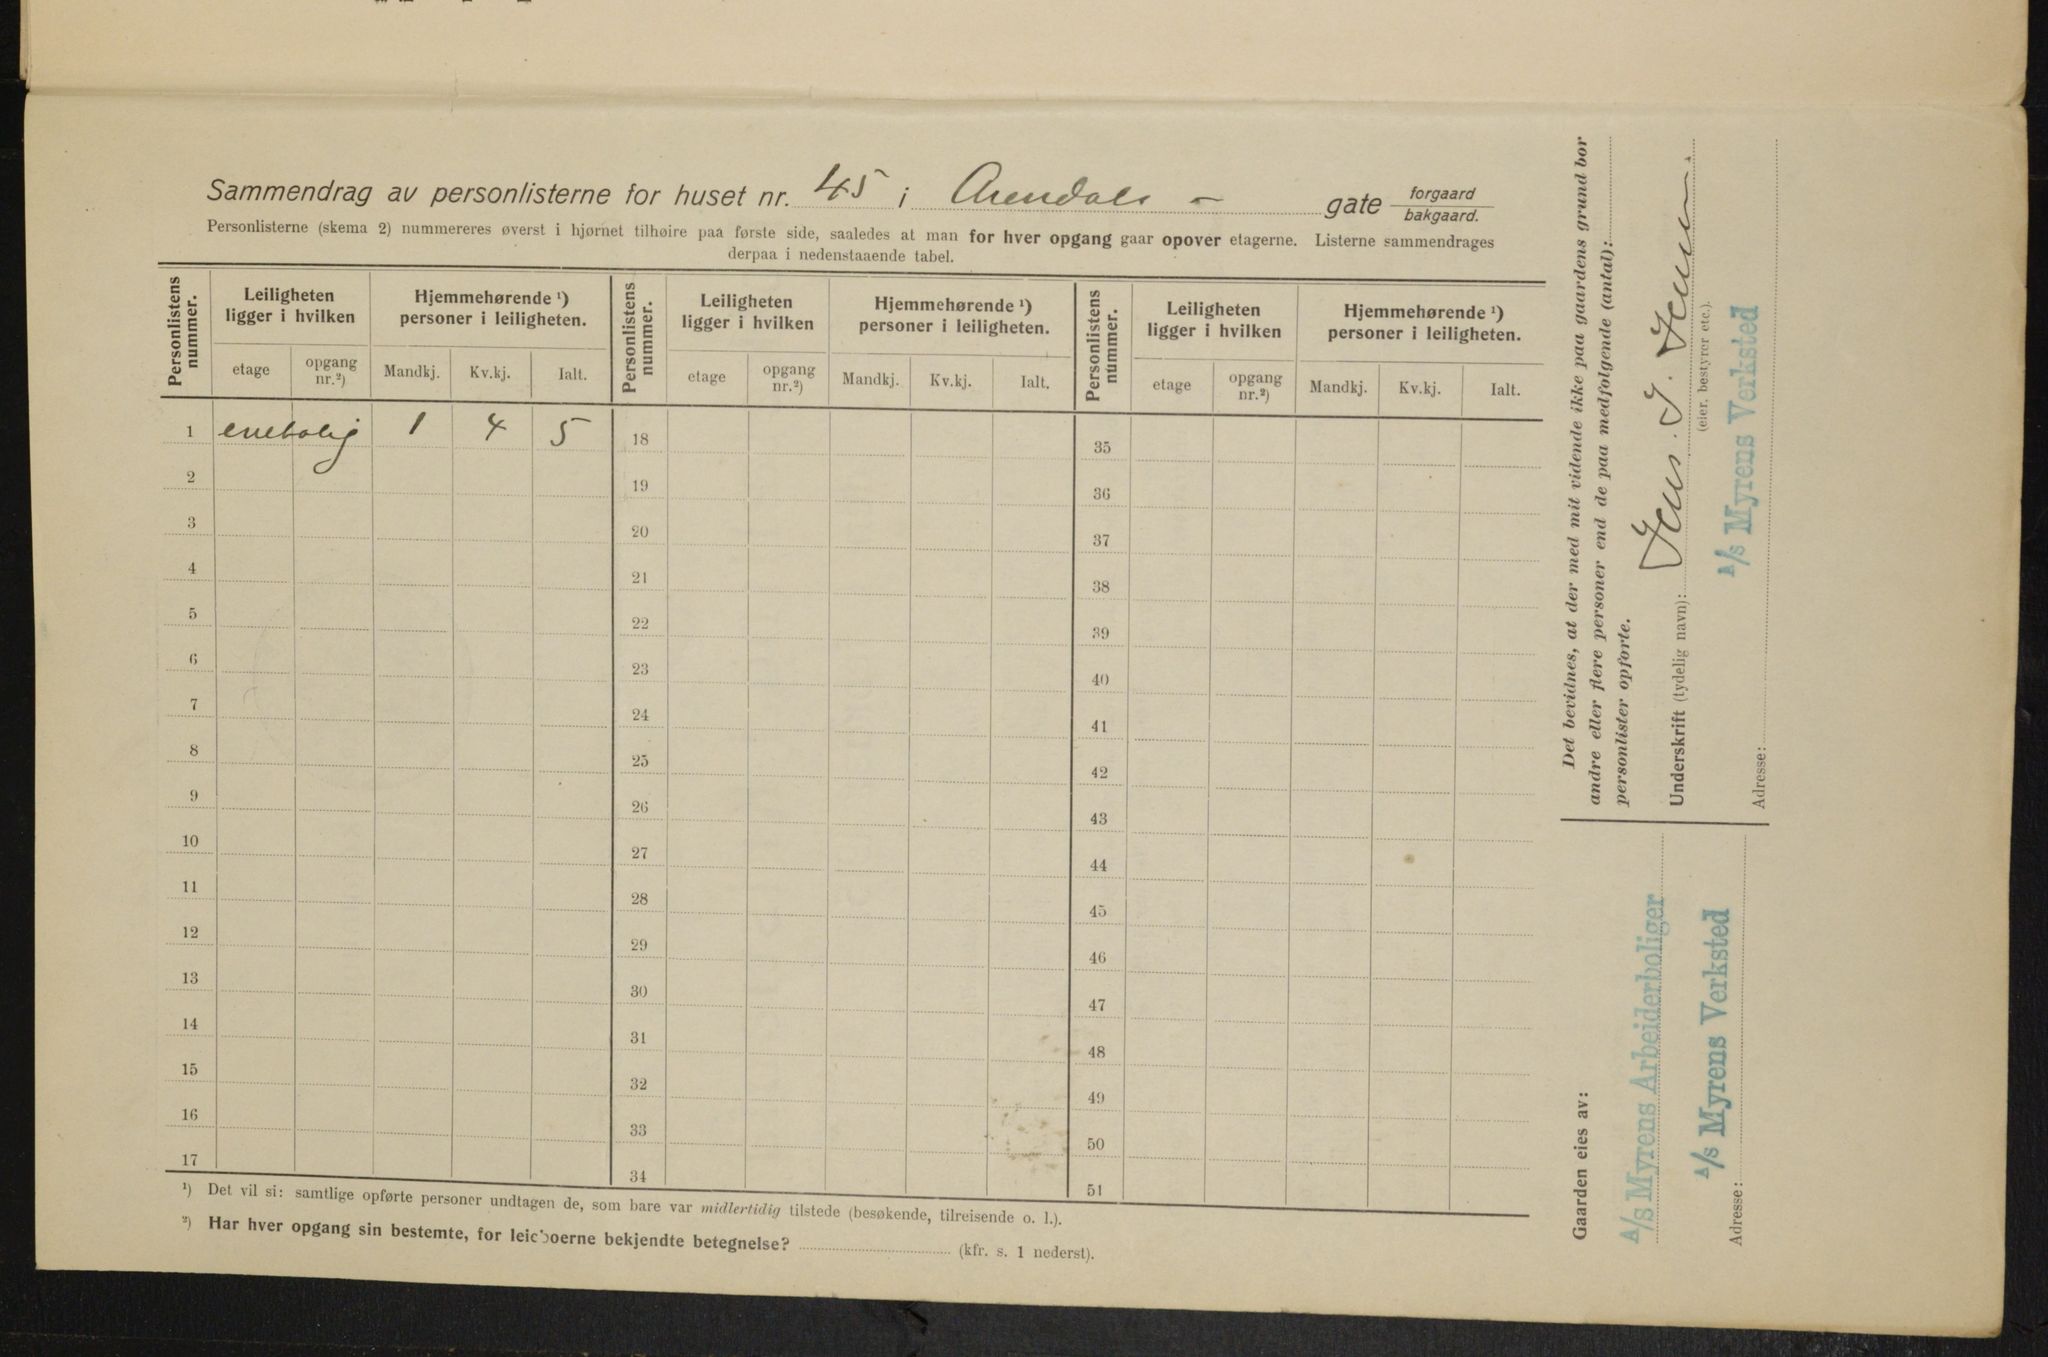 Sammendrag av personlisterne for huset nr. 45 i Arendals - gate forgaard
bakgaard.
Personlisterne (skema 2) nummereres øverst i hjørnet tilhøire paa første side, saaledes at man for hver opgang gaar opover etagerne. Listerne sammendrages
derpaa i nedenstaaende tabel.
Personlistens nummer.
Leiligheten ligger i hvilken
Hjemmehørende ¹) personer i leiligheten.
etage
opgang nr.²)
Mandkj.
Kv.kj.
Ialt.
Personlistens nummer.
Leiligheten ligger i hvilken
Hjemmehørende ¹) personer i leiligheten.
etage
opgang nr.²)
Mandkj.
Kv.kj.
Ialt.
Personlistens nummer.
Leiligheten ligger i hvilken
Hjemmehørende ¹) personer i leiligheten.
etage
opgang nr.²)
Mandkj.
Kv.kj.
Ialt.
1 enebolig 1 4 5 18 35
2 19 36
3 20 37
4 21 38
5 22 39
6 23 40
7 24 41
8 25 42
9 26 43
10 27 44
11 28 45
12 29 46
13 30 47
14 31 48
15 32 49
16 33 50
17 34 51
¹) Det vil si: samtlige opførte personer undtagen de, som bare var midlertidig tilstede (besøkende, tilreisende o. l.).
²) Har hver opgang sin bestemte, for leieboerne bekjendte betegnelse? (kfr. s. 1 nederst).
Det bevidnes, at der med mit vidende ikke paa gaardens grund bor
andre eller flere personer end de paa medfølgende (antal):
personlister opførte.
Underskrift (tydelig navn): Jens. J. Jensen.
(eier, bestyrer etc.).
A/s Myrens Verksted
Adresse:
Gaarden eies av:
A/s Myrens Arbeiderboliger
A/s Myrens Verksted
Adresse: